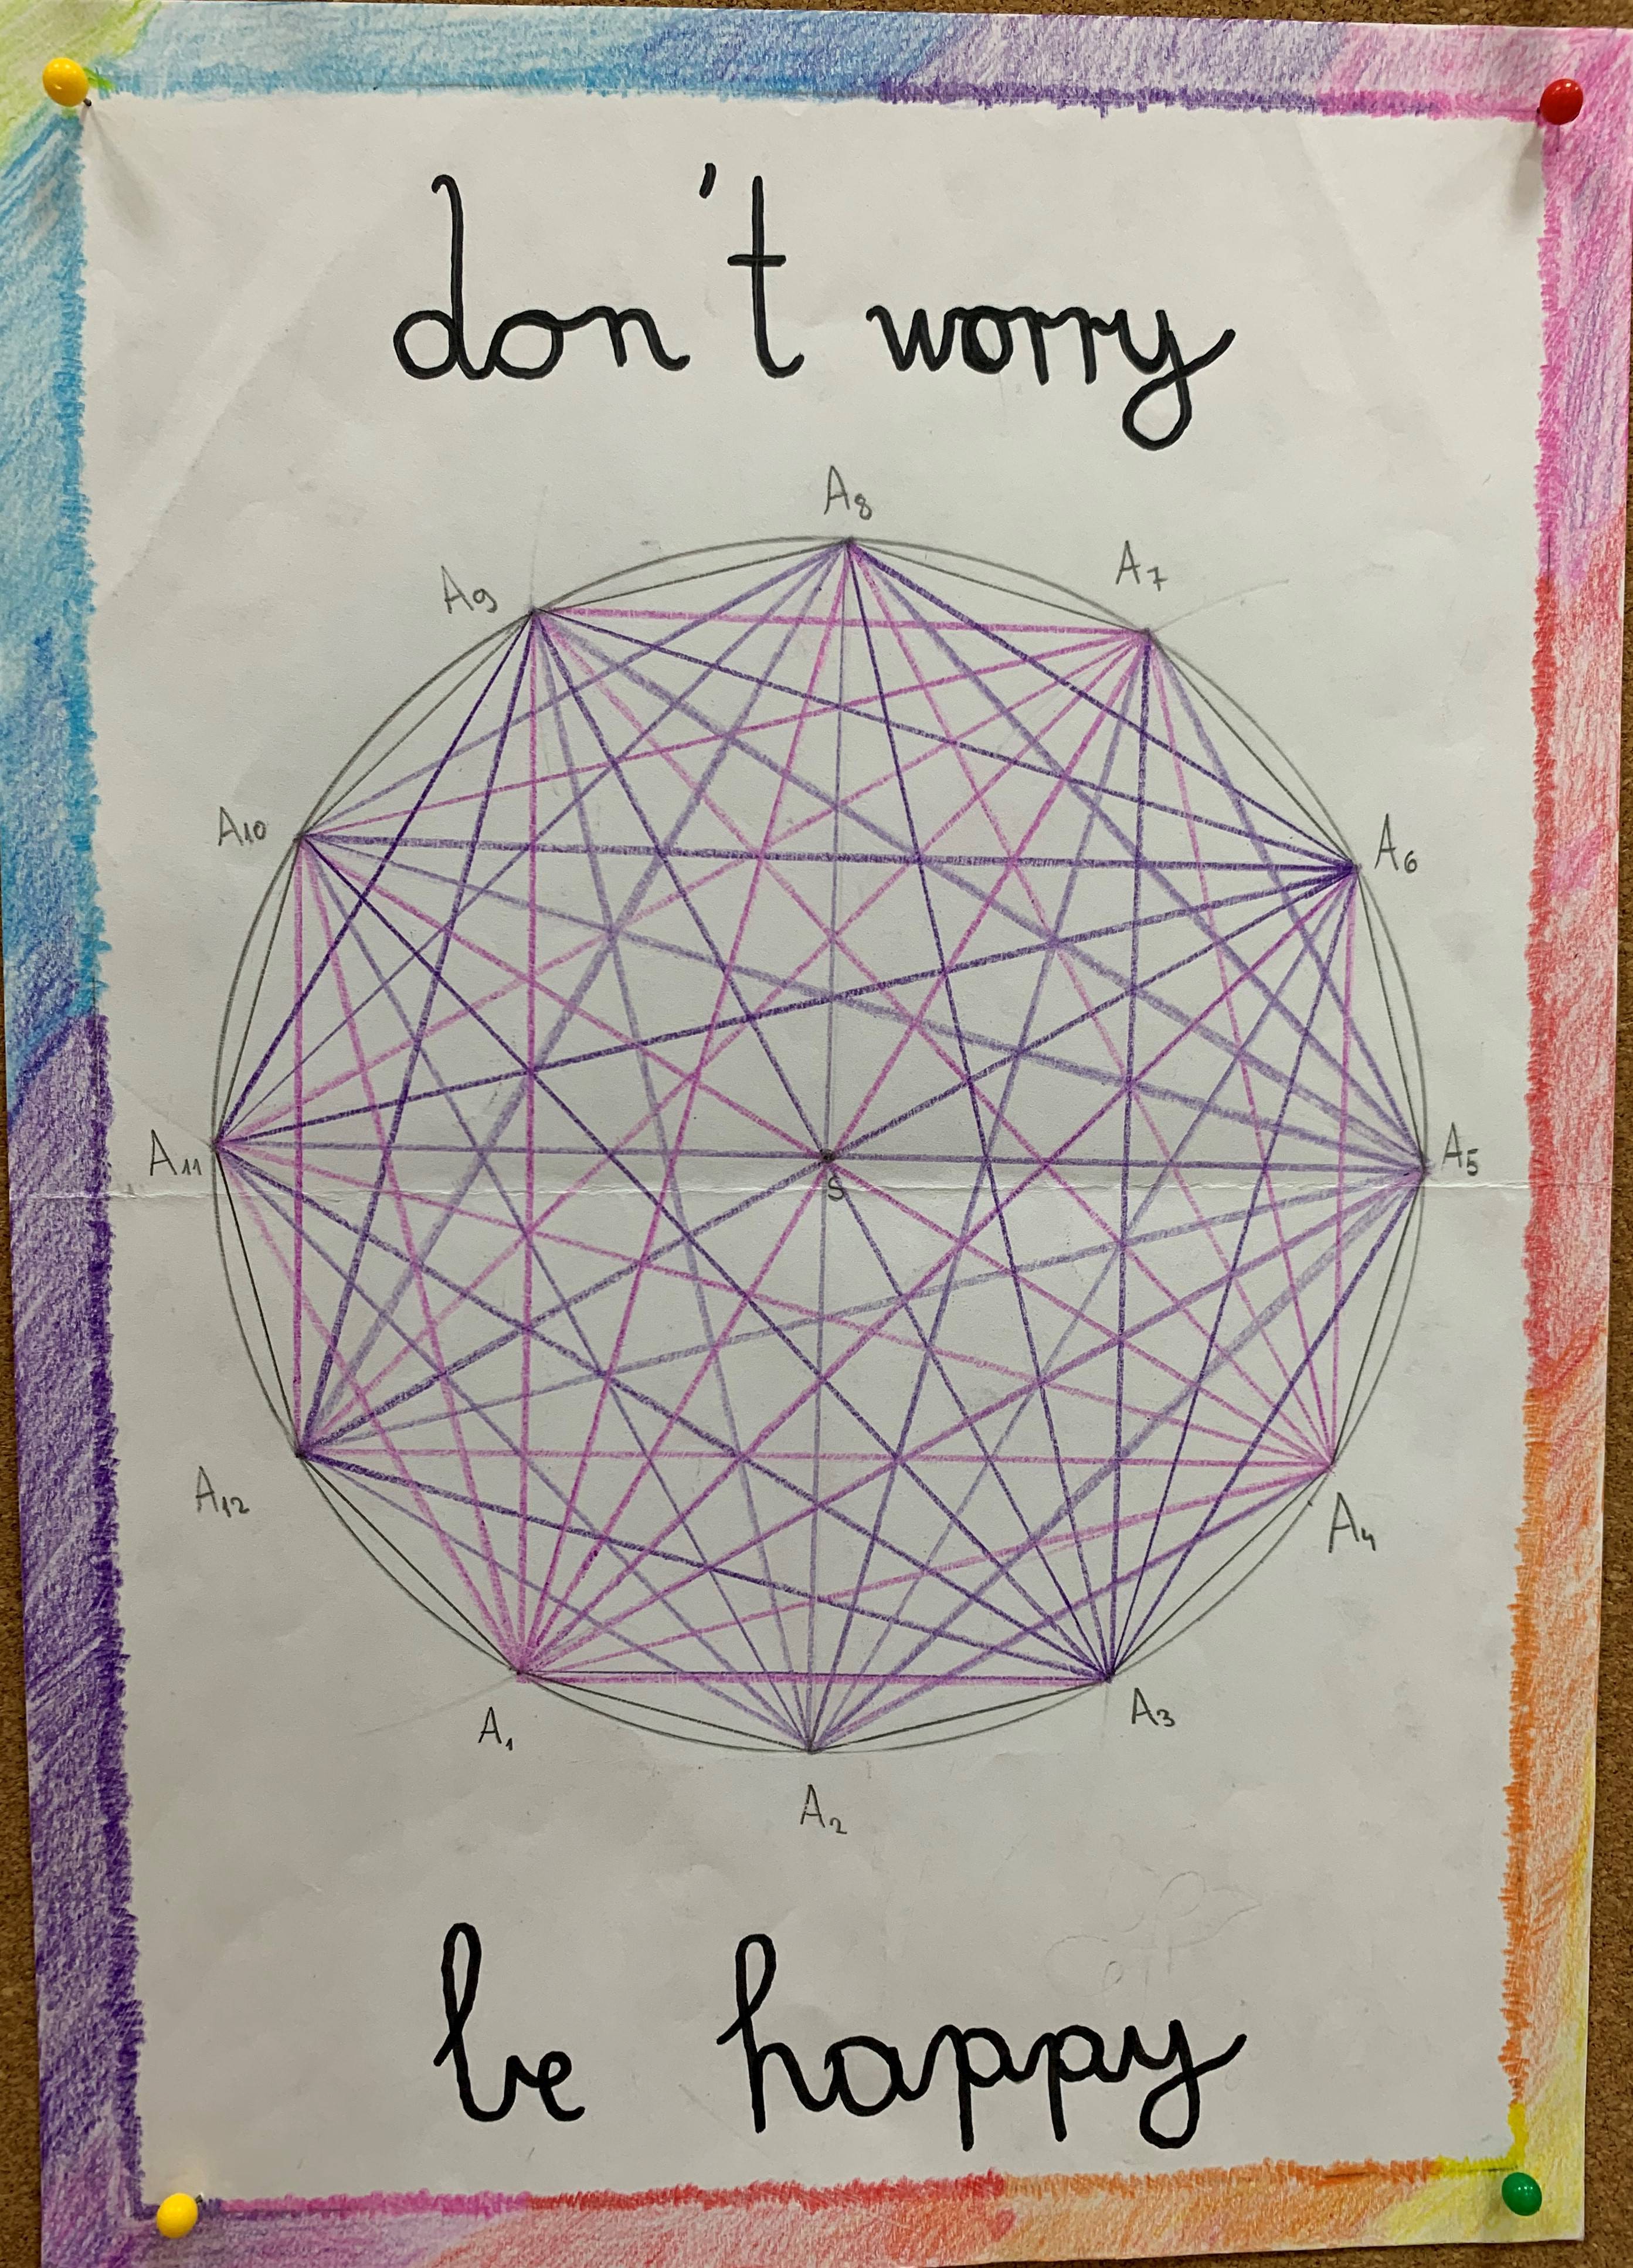 don't worry
A8
A7
A9
A10
A6
A11
S
A5
A12
A4
A1
A3
A2
be happy